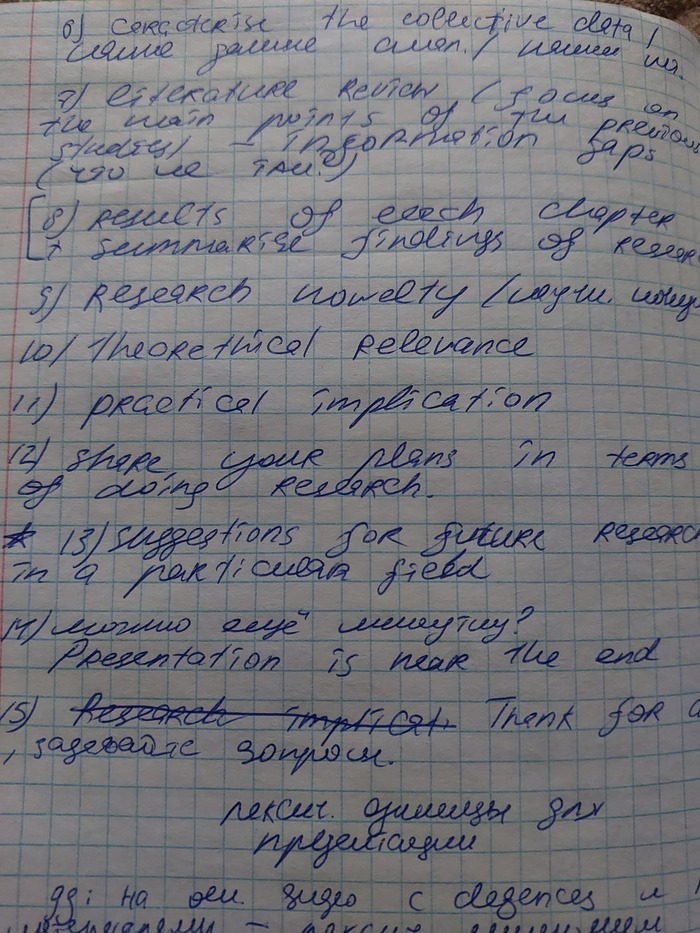 6) ceracterise the collective data /
наше данные /
7) literature review (focus on
the main points of the previous
studies) – information gaps
(что не так?)
8) results of each chapter
+ summarise findings of resear
9) Research nowelty (научн. новиз
10) Theorethical relevance
11) practical implication
12) share your plans in terms
of doing research.
* 13) suggestions for future researc
in a particular field
14) можно ещё минутку?
Presentation is near the end
15) Research implicat. Thank for a
, задавайте вопросы.
лексич. единицы для
презентации
дз: на